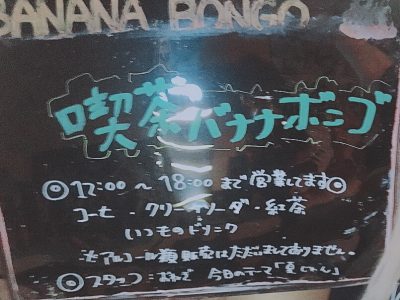 BANANA BONGO
喫茶バナナボンゴ
◎12:00～18:00まで営業してます◎
コーヒー・クリームソーダ・紅茶
いつものドリンク
※アルコール類販売はただ今しておりません。
◎スタッフ: 今日のテーマ「夏じかん」